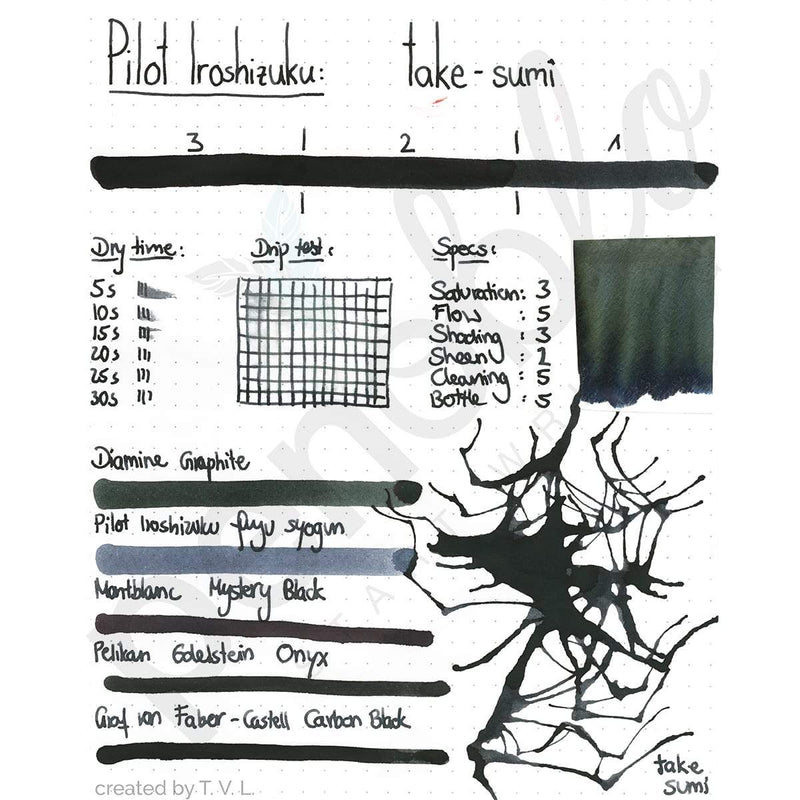 Pilot Iroshizuku: take-sumi
3 | 2 | 1
Dry time:
5s
10s
15s
20s
25s
30s
Drip test:
Specs:
Saturation: 3
Flow : 5
Shading : 3
Sheen : 1
Cleaning : 5
Bottle : 5
Diamine Graphite
Pilot Iroshizuku fuyu syogun
Montblanc Mystery Black
Pelikan Edelstein Onyx
Graf von Faber-Castell Carbon Black
take
sumi
created by T. V. L.
penoblo